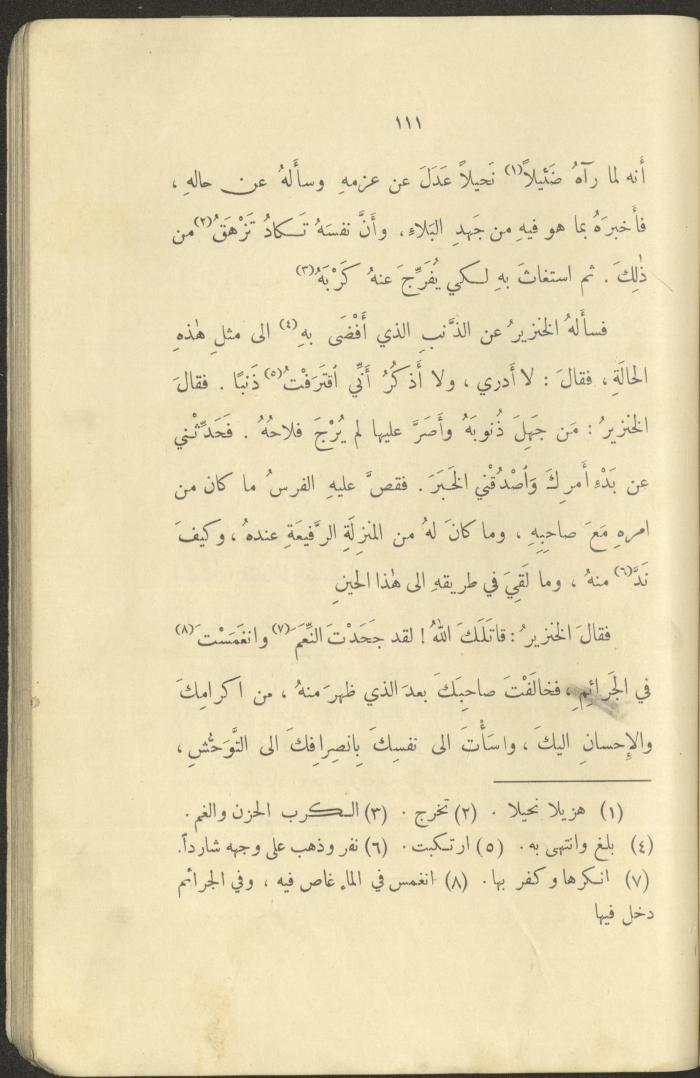 ١١١
أنه لما رآهُ ضَئيلاً(١) نَحيلاً عَدَلَ عن عزمهِ وسأَلهُ عن حالهِ ،
فأَخبرَهُ بما هو فيهِ من جَهدِ البَلاءِ ، وأَنَّ نفسَهُ تَكادُ تَزْهَقُ(٢) من
ذٰلِكَ . ثم استغاثَ بهِ لكي يُفَرِّجَ عنهُ كَرْبَهُ(٣)
فسأَلهُ الخنزيرُ عن الذَّنبِ الذي أَفْضَى بهِ(٤) الى مثلِ هٰذهِ
الحالَةِ ، فقالَ : لا أَدري ، ولا أَذكُرُ أَنِّي ٱقتَرَفْتُ(٥) ذَنبًا . فقالَ
الخنزيرُ : مَن جَهِلَ ذُنوبَهُ وأَصَرَّ عليها لم يُرْجَ فلاحُهُ . فَحَدِّثْني
عن بَدْءِ أَمرِكَ وَٱصْدُقْني الخَبَرَ . فقصَّ عليهِ الفرسُ ما كان من
امرهِ مَعَ صاحبِهِ ، وما كانَ لهُ من المنزِلَةِ الرَّفيعَةِ عندهُ ، وكيفَ
نَدَّ(٦) منهُ ، وما لَقِيَ في طريقهِ الى هٰذا الحينِ
فقالَ الخنزيرُ : قاتَلَكَ اللهُ ! لقد جَحَدْتَ النِّعَمَ(٧) وانغَمَسْتَ(٨)
في الجَرائِمِ ، فخالَفْتَ صاحِبَكَ بعدَ الذي ظهرَ منهُ ، من اكرامِكَ
والإِحسانِ اليكَ ، واسَأْتَ الى نفسِكَ بِانصِرافِكَ الى التَّوَحُّشِ ،
(١) هزيلا نحيلا . (٢) تخرج . (٣) الكرب الحزن والغم .
(٤) بلغ وانتهى به . (٥) ارتكبت . (٦) نفر وذهب على وجهه شارداً.
(٧) انكرها وكفر بها . (٨) انغمس في الماء غاص فيه ، وفي الجرائم
دخل فيها